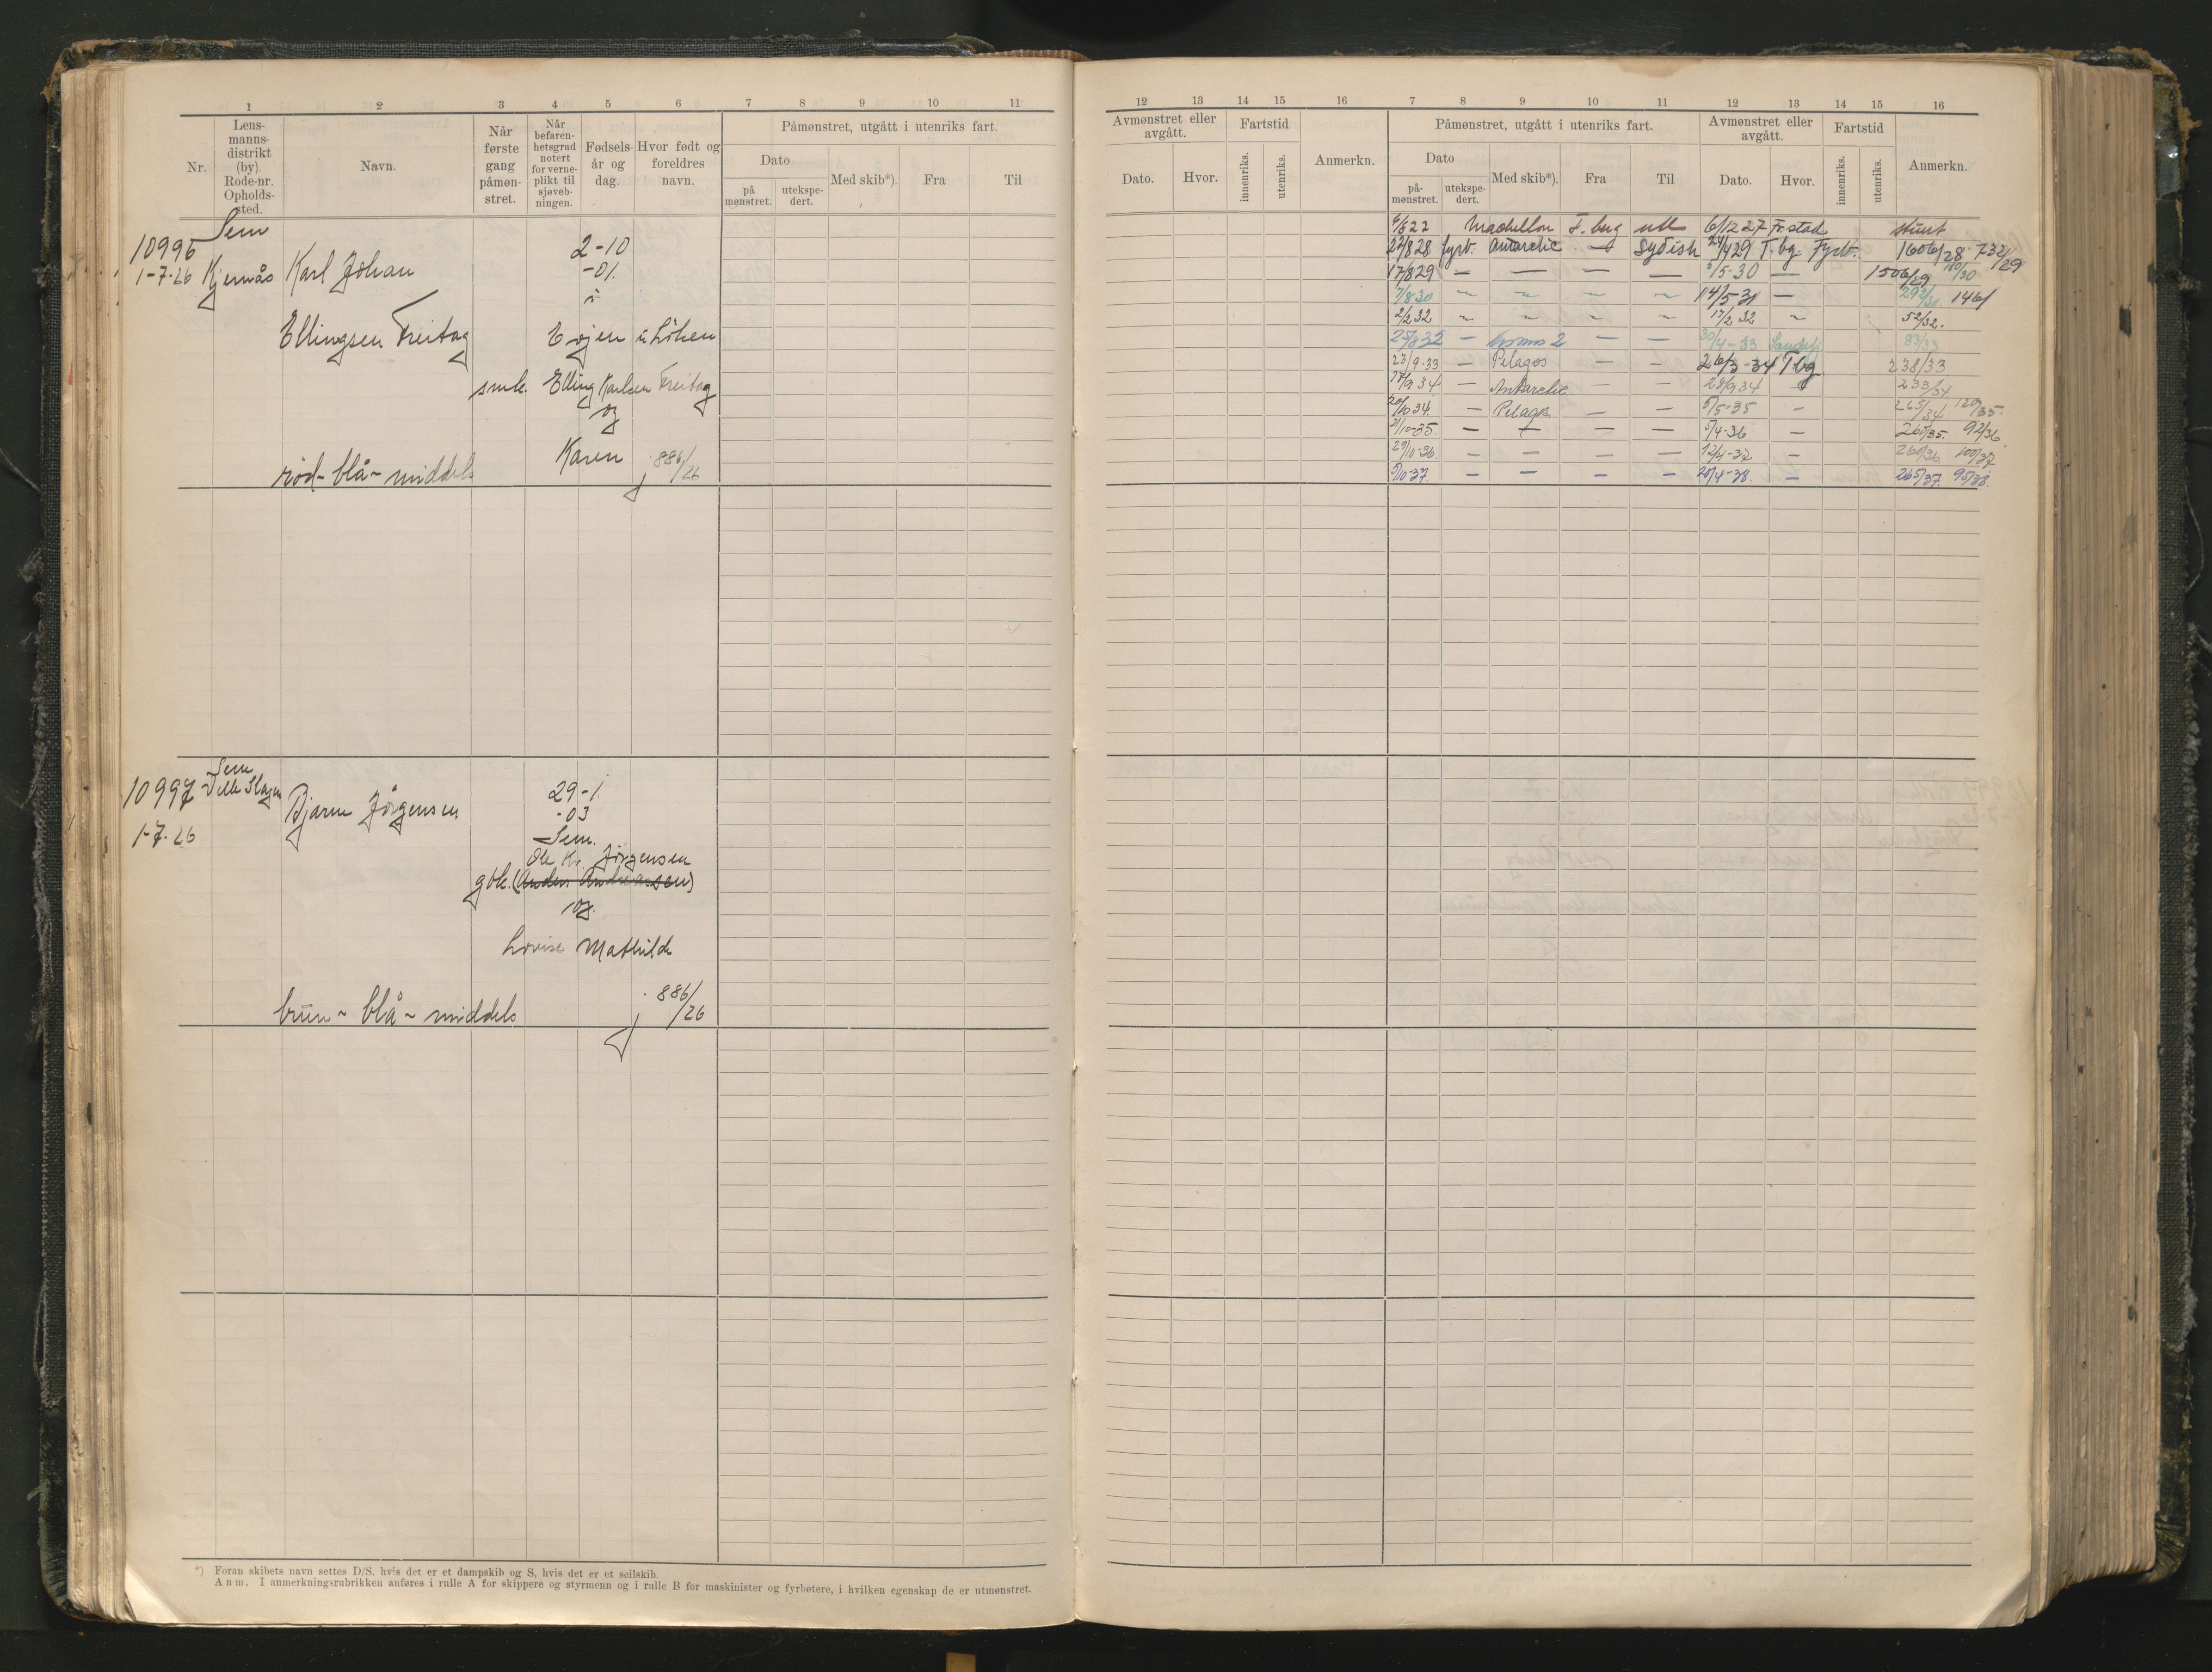 1 2 3 4 5 6 7 8 9 10 11
Nr.
Lens-
manns-
distrikt
(by).
Rode-nr.
Opholds-
sted.
Navn.
Når
første
gang
påmøn-
stret.
Når
befaren-
hetsgrad
notert
for verne-
plikt til
sjøveb-
ningen.
Fødsels-
år og
dag.
Hvor født og
foreldres
navn.
Påmønstret, utgått i utenriks fart.
Dato
på
mønstret.
utekspe-
dert.
Med skib*).
Fra
Til
Sem
10996
1-7-26 Kjernås Karl Johan
2-10
-01
i
Ellingsen Freitag
smk. Elling Karlsen Freitag
og
Karen
rød- blå- middels
886/26
Sem
10997
1-7-26
Bjarne Jørgensen
29-1
-03
Sem.
Ole Kr. Jørgensen
(Anders Andreassen)
og
Lovise Mathilde
brun- blå- middels
886/26
*) Foran skibets navn settes D/S, hvis det er et dampskib og S, hvis det er et seilskib.
Anm. I anmerkningsrubrikken anføres i rulle A for skippere og styrmenn og i rulle B for maskinister og fyrbøtere, i hvilken egenskap de er utmønstret.
12 13 14 15 16 7 8 9 10 11 12 13 14 15 16
Avmønstret eller
avgått.
Dato.
Hvor.
Fartstid
innenriks.
utenriks.
Anmerkn.
Påmønstret, utgått i utenriks fart.
Dato
på-
mønstret.
utekspe-
dert.
Med skib*).
Fra
Til
Avmønstret eller
avgått.
Dato.
Hvor.
Fartstid
innenriks.
utenriks.
Anmerkn.
F.stad
22/8 28 fyrb. Antarctic — Sydish 24/4 29 T.bg Fyrb. 1606/28 732/29
17/8 29 — — — — /5-30 — 1506/29
7/8 30 ~ ~ ~ ~ 14/5-31 —
2/2 32 ~ ~ ~ ~ 17/2 32 ~ 52/32.
25/8 32 — — — 30/4-33 Sandefj 83/33
23/9-33 — Pelagos — — 26/3-34 T.bg 238/33
17/9 34 — Antarctic 28/9 34 — 233/34
20/10 34. — Pelagos — — 5/5-35 — 263/34 120/35.
3/10-35. — — — — 5/4-36 — 260/35. 92/36
29/10-36 — — — — 12/4-37 — 260/36 100/37
5/10-37. — — — — 20/4-38. — 265/37. 95/38.